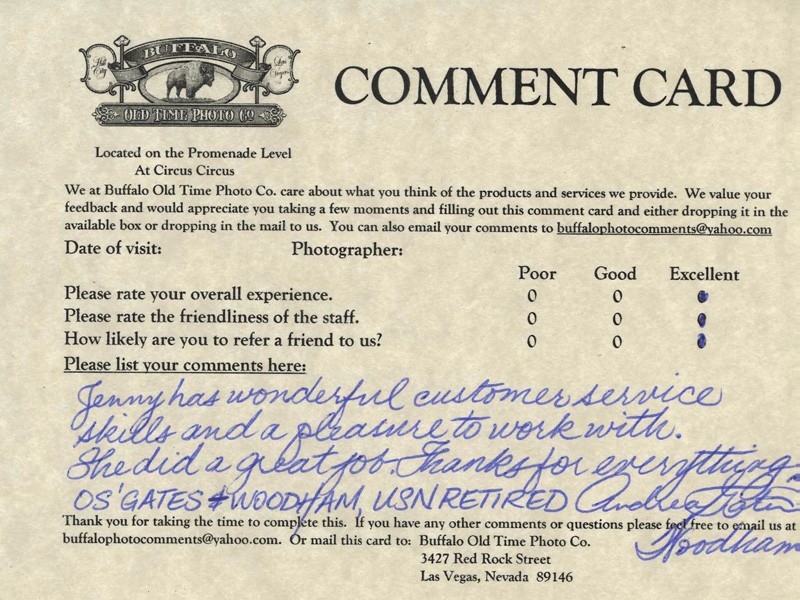 BUFFALO
Salt City
Las Vegas
OLD TIME PHOTO CO
COMMENT CARD
Located on the Promenade Level
At Circus Circus
We at Buffalo Old Time Photo Co. care about what you think of the products and services we provide. We value your
feedback and would appreciate you taking a few moments and filling out this comment card and either dropping it in the
available box or dropping in the mail to us. You can also email your comments to buffalophotocomments@yahoo.com
Date of visit: Photographer:
Poor Good Excellent
Please rate your overall experience.
Please rate the friendliness of the staff.
How likely are you to refer a friend to us?
Please list your comments here:
Jenny has wonderful customer service
skills and a pleasure to work with.
She did a great job. Thanks for everything.
OS' GATES & WOODHAM, USN RETIRED Andrea
Woodham
Thank you for taking the time to complete this. If you have any other comments or questions please feel free to email us at
buffalophotocomments@yahoo.com. Or mail this card to: Buffalo Old Time Photo Co.
3427 Red Rock Street
Las Vegas, Nevada 89146